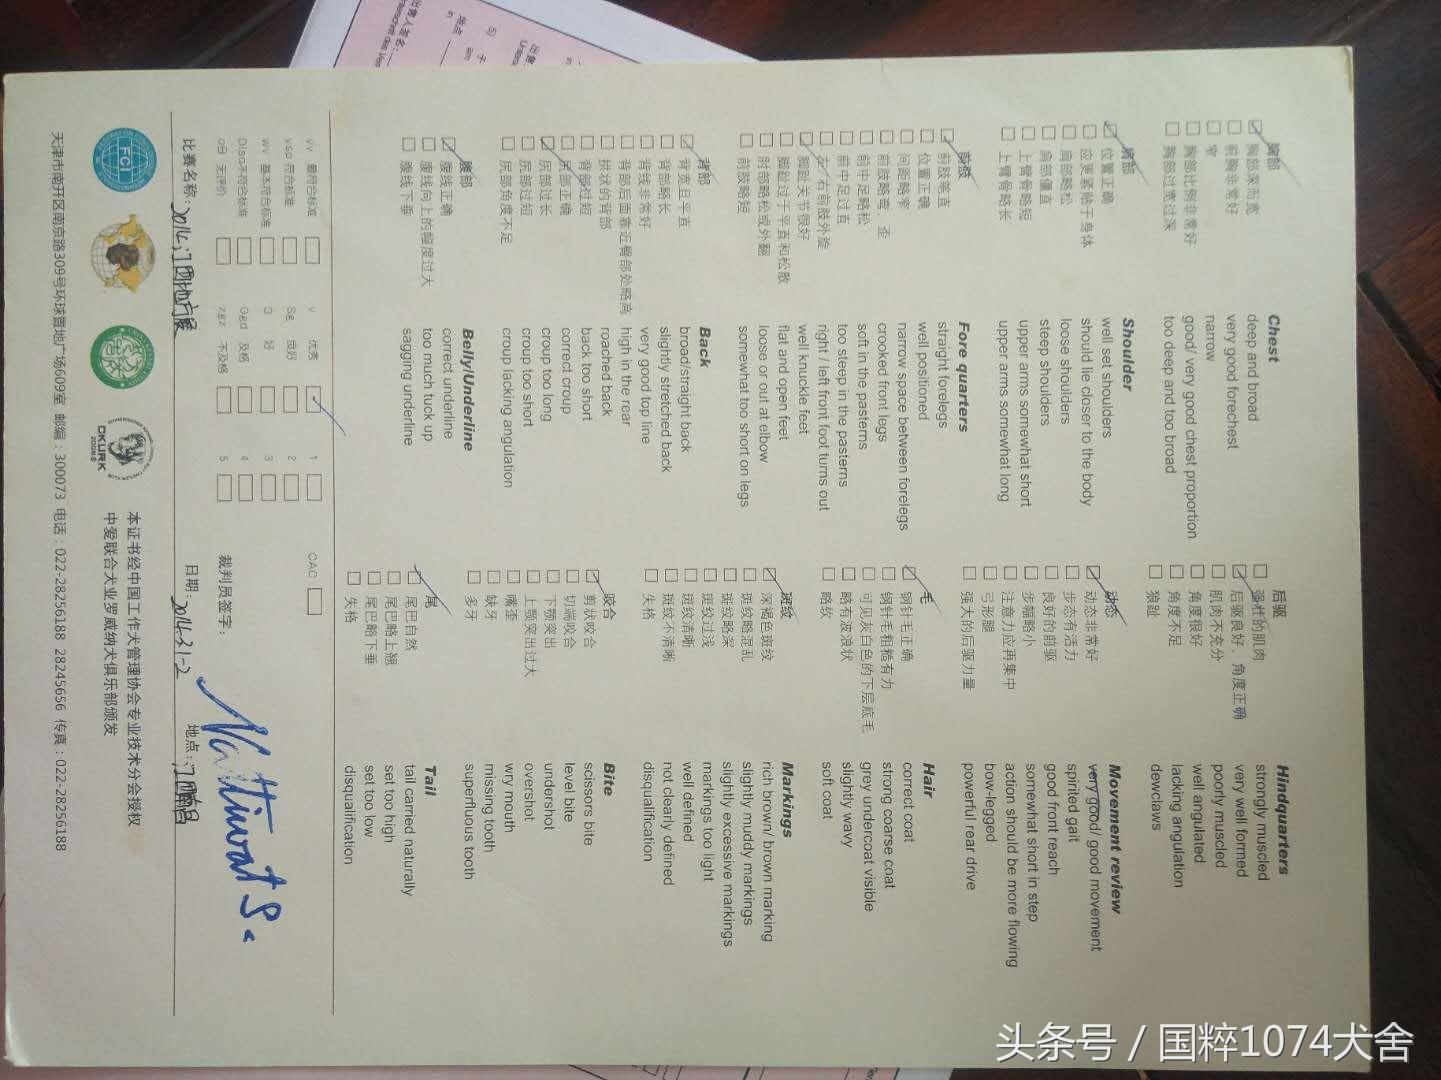 胸部
胸部深而宽
前胸非常好
窄
胸部比例非常好
胸部过宽过深
Chest
deep and broad
very good forechest
narrow
good/ very good chest proportion
too deep and too broad
肩部
位置正确
应更紧贴于身体
肩部略松
肩部僵直
上臂骨略短
上臂骨略长
Shoulder
well set shoulders
should lie closer to the body
loose shoulders
steep shoulders
upper arms somewhat short
upper arms somewhat long
前肢
前肢笔直
位置正确
间距略窄
前肢略弯 歪
前中足略松
前中足过直
左/右前肢外旋
脚趾关节很好
脚趾过于平直和松散
肘部略松或外翻
前肢略短
Fore quarters
straight forelegs
well positioned
narrow space between forelegs
crooked front legs
soft in the pasterns
too steep in the pasterns
right / left front foot turns out
well knuckle feet
flat and open feet
loose or out at elbow
somewhat too short on legs
背部
背宽且平直
背部略长
背线非常好
背部后面靠近臀部处略高
拱状的背部
背部过短
尻部正确
尻部过长
尻部过短
尻部角度不足
Back
broad/straight back
slightly stretched back
very good top line
high in the rear
roached back
back too short
correct croup
croup too long
croup too short
croup lacking angulation
腹部
腹线正确
腹线向上的幅度过大
腹线下垂
Belly/Underline
correct underline
too much tuck up
sagging underline
后驱
强壮的肌肉
后驱良好、角度正确
肌肉不充分
角度很好
角度不足
狼趾
Hindquarters
strongly muscled
very well formed
poorly muscled
well angulated
lacking angulation
dewclaws
动态
动态非常好
步态有活力
良好的前驱
步幅略小
注意力应再集中
弓形腿
强大的后驱力量
Movement review
very good/ good movement
spirited gait
good front reach
somewhat short in step
action should be more flowing
bow-legged
powerful rear drive
毛
钢针毛正确
钢针毛粗糙有力
可见灰白色的下层底毛
略有波浪状
略软
Hair
correct coat
strong coarse coat
grey undercoat visible
slightly wavy
soft coat
斑纹
深褐色斑纹
斑纹略混乱
斑纹略深
斑纹过浅
斑纹清晰
斑纹不清晰
失格
Markings
rich brown/ brown marking
slightly muddy markings
slightly excessive markings
markings too light
well defined
not clearly defined
disqualification
咬合
剪状咬合
切端咬合
下颚突出
上颚突出过大
嘴歪
缺牙
多牙
Bite
scissors bite
level bite
undershot
overshot
wry mouth
missing tooth
superfluous tooth
尾
尾巴自然
尾巴略上翘
尾巴略下垂
失格
Tail
tail carried naturally
set too high
set too low
disqualification
vv 最符合标准 v 优秀 1 CAC
vsp 符合标准 Sg 良好 2
wv 基本符合标准 G 好 3
Disq 不符合标准 Ggd 及格 4
oB 无评价 zgz 不及格 5
裁判员签字：
比赛名称：
日期：
地点：
FCI
CKURK
本证书经中国工作犬管理协会专业技术分会授权
中爱联合犬业罗威纳犬俱乐部颁发
天津市南开区南京路309号环球置地广场609室 邮编：300073 电话：022-28256188 28245656 传真：022-28256188
头条号 / 国粹1074犬舍